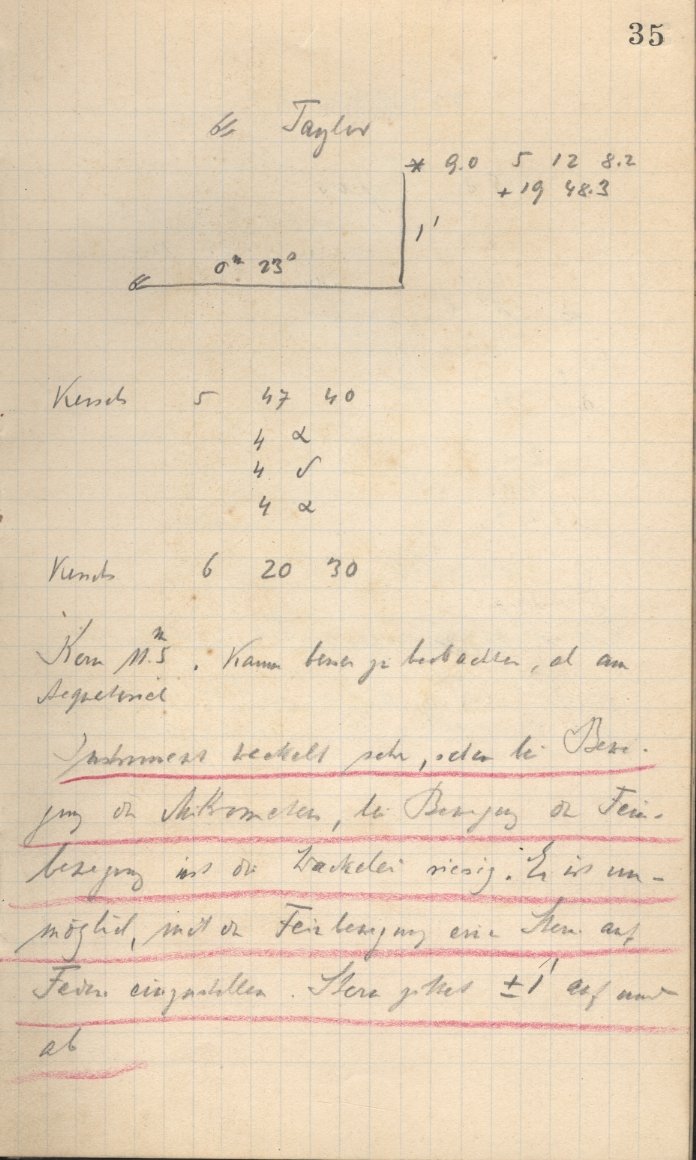 35
☄ Taylor
* 9.0 5 12 8.2
+ 19 48.3
1'
0m 23s
5 47 40
4 α
4 δ
4 α
6 20 30
Kern 11.m5. Kaum besser zu beobachten, als am
Aequatoreal
Instrument wackelt sehr, schon bei Bewe-
gung der Mikrometer, bei Bewegung der Fein-
bewegung ist die Wackelei riesig. Es ist un-
möglich, mit der Feinbewegung eine Stern auf
Faden einzustellen. Stern zittert ± 1' auf und
ab